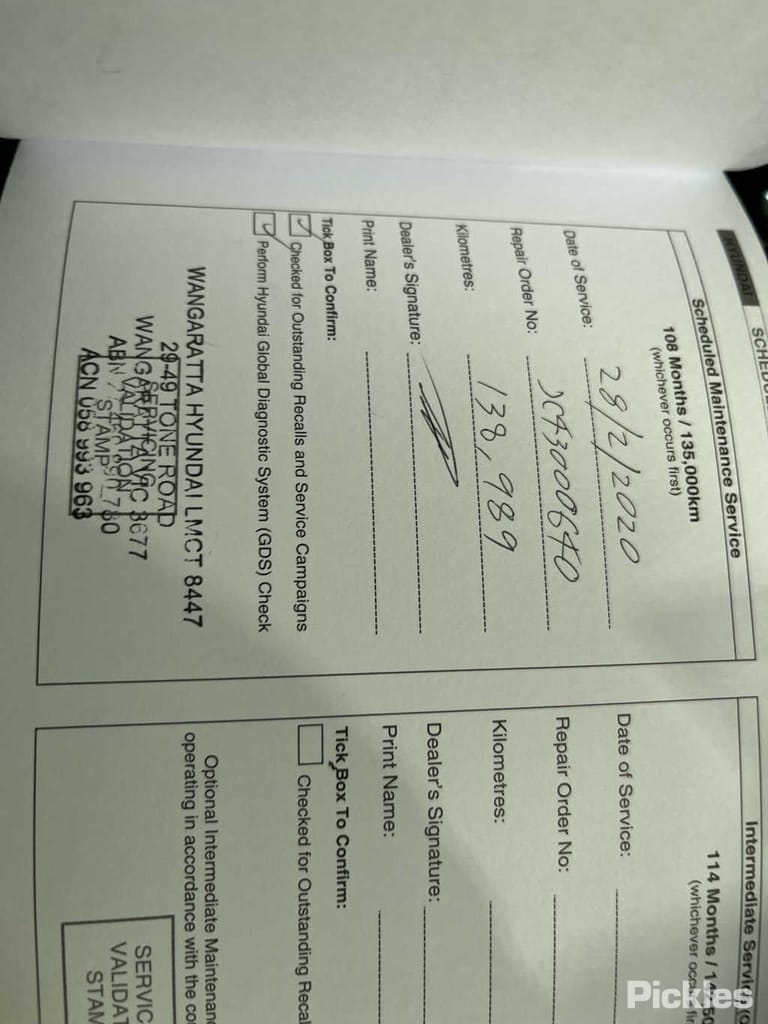 HYUNDAI
Scheduled Maintenance Service
108 Months / 135,000km
(whichever occurs first)
Date of Service: 28/2/2020
Repair Order No:
Kilometres: 138,989
Dealer's Signature:
Print Name:
Tick Box To Confirm:
Checked for Outstanding Recalls and Service Campaigns
Perform Hyundai Global Diagnostic System (GDS) Check
WANGARATTA HYUNDAI LMCT 8447
29-49 TONE ROAD
WANGARATTA VIC 3677
SERVICING
VALIDATION
STAMP
ABN
ACN 056 993 963
Intermediate Service
114 Months /
(whichever
Date of Service:
Repair Order No:
Kilometres:
Dealer's Signature:
Print Name:
Tick Box To Confirm:
Checked for Outstanding Recal
Optional Intermediate Maintenanc
operating in accordance with the co
SERVIC
VALIDAT
STAM
Pickles